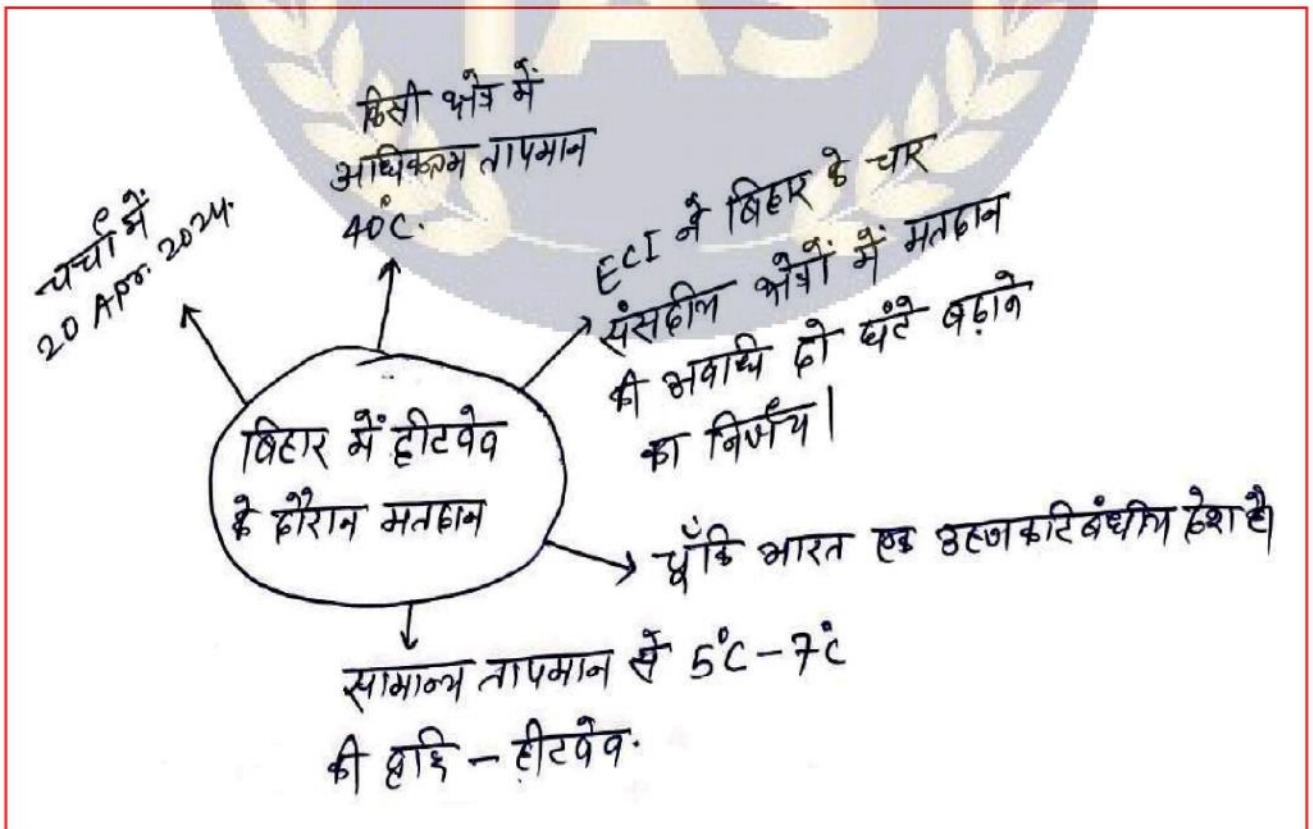 IAS
चर्चा में
20 Apr. 2024.
किसी क्षेत्र में
अधिकतम तापमान
40°C.
ECI ने बिहार के चार
संसदीय क्षेत्रों में मतदान
की अवधि दो घंटे बढ़ाने
का निर्णय।
बिहार में हीटवेव
के दौरान मतदान
चूँकि भारत एक उष्णकटिबंधीय देश है।
सामान्य तापमान से 5°C-7°C
की वृद्धि - हीटवेव.